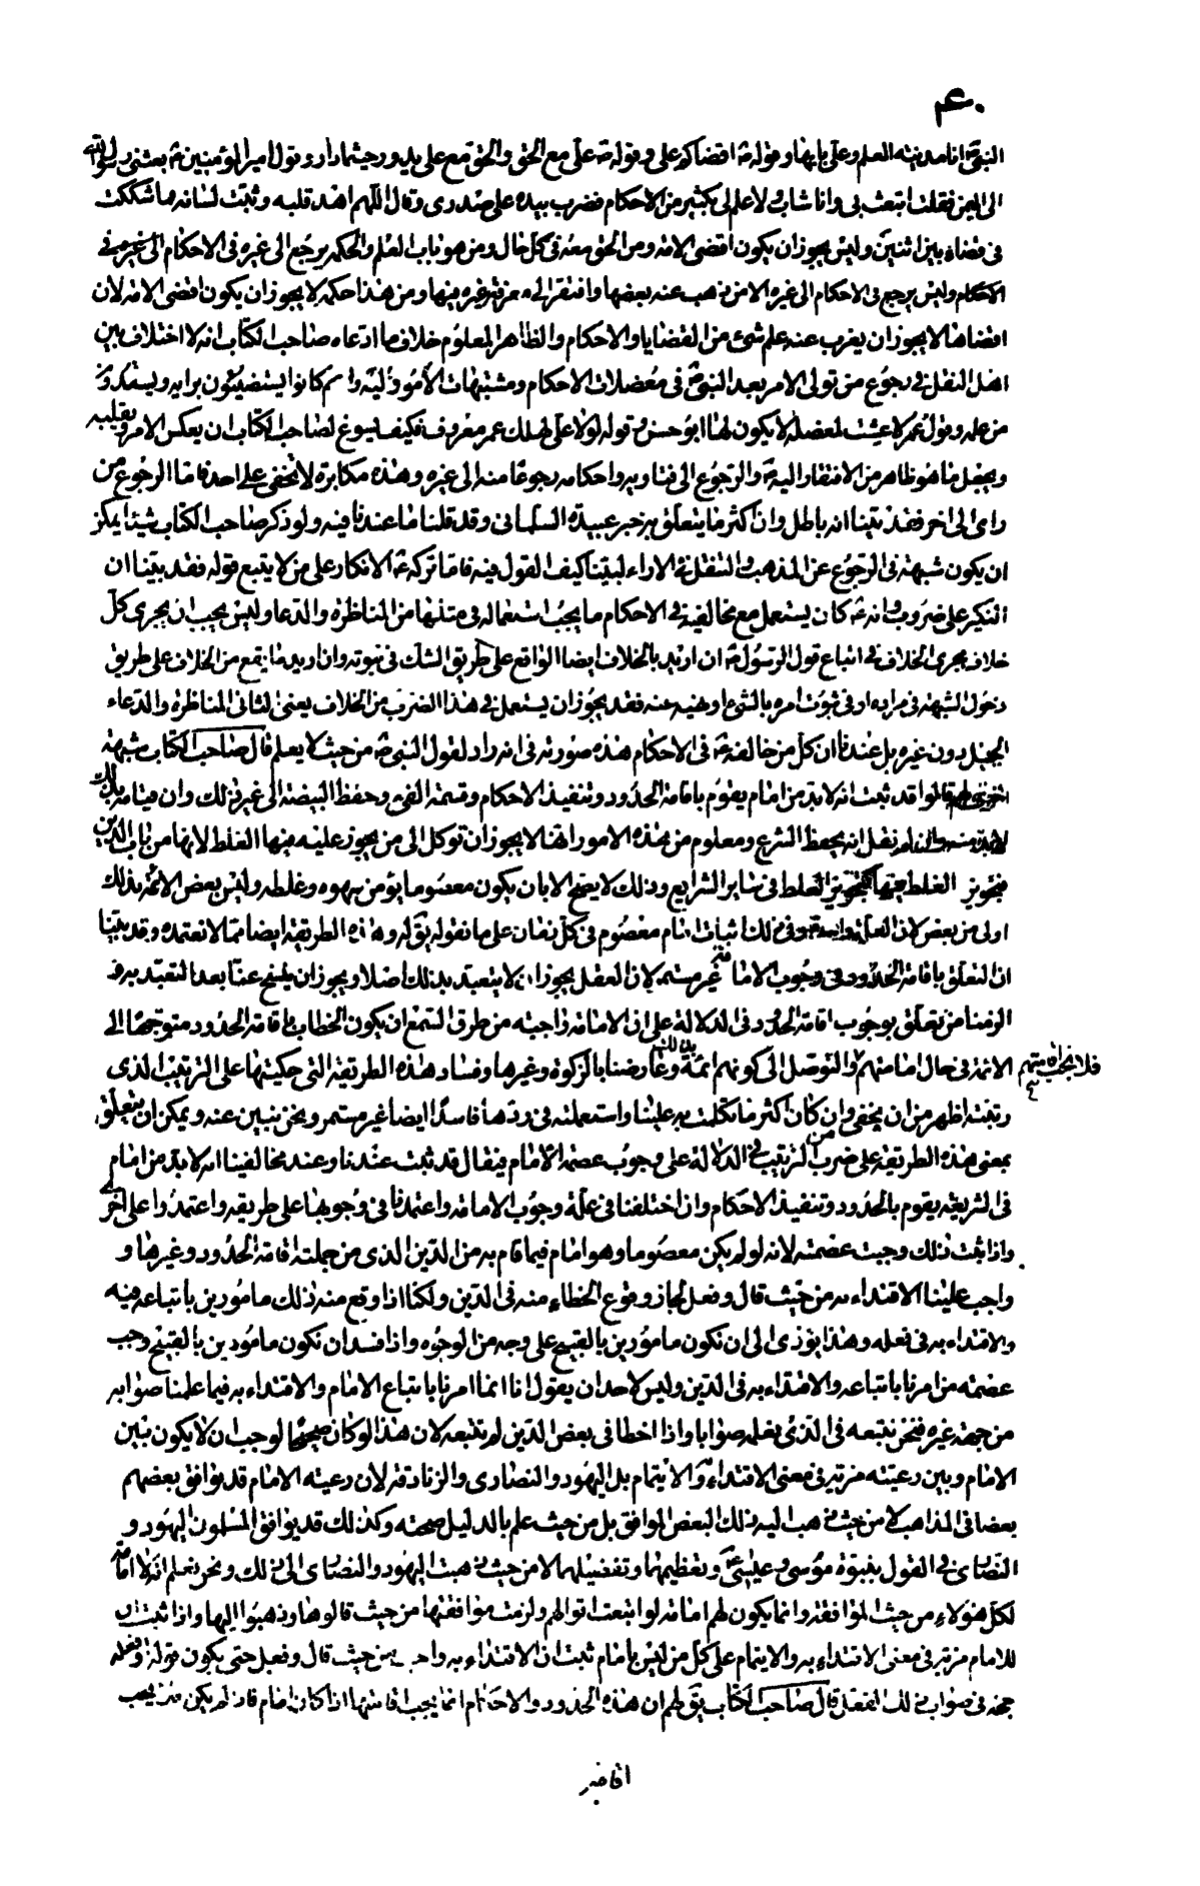 ٤٠
النبي ص انا مدينة العلم وعلى بابها وقوله ص اقضاكم على وقوله ص على مع الحق والحق مع على يدور حيثما دار وقول امير المؤمنين ع بعثنى رسول الله
الى اليمن فقلت اتبعث بى وانا شاب ولا علم لى بكثير من الاحكام فضرب بيده على صدرى وقال اللهم اهد قلبه وثبت لسانه فما شككت
فى قضاء بين اثنين وليس يجوز ان يكون اقضى الامة ومن الحق معه فى كل حال ومن هو باب العلم والحكمة يرجع الى غيره فى الاحكام الى غيره فى
الاحكام وليس يرجع فى الاحكام الى غيره الا من ذهب عنه بعضها وافتقر الى معرفة غيره فيها ومن هذا حكمه لا يجوز ان يكون اقضى الامة لان
اقضاها لا يجوز ان يغرب عنه علم شئ من القضايا والاحكام والظاهر المعلوم خلاف ما ادعاه صاحب الكتاب انه لا اختلاف بين
اهل النقل فى رجوع من تولى الامر بعد النبي ص فى معضلات الاحكام ومشتبهات الأمور اليه وانهم كانوا يستضيئون برايه ويستمدون
من علمه وقول عمر لا عشت لمعضلة لا يكون لها ابو حسن وقوله لولا على لهلك عمر معروف فكيف يسوغ لصاحب الكتاب ان يعكس الامر ويقلبه
ويجعل ما هو ظاهر من الافتقار اليه ع والرجوع الى فتاويه واحكامه رجوعا منه الى غيره وهذه مكابرة لا تخفى على احد فاما الرجوع من
راى الى اخر فقد بينا انه باطل وان كثر ما يتعلق به خبر عبيدة السلمانى وقد قلنا ما عندنا فيه ولو ذكر صاحب الكتاب شيئا يمكن
ان يكون شبهة فى الرجوع عن المذهب والتنقل فى الاراء لبينا كيف القول فيه فاما تركه ع الانكار على من لا يتبع قوله فقد بينا ان
النكير على ضروب وانه ع كان يستعمل مع مخالفيه فى الاحكام ما يجب استعماله فى مثلها من المناظرة والدعا وليس يجب ان يجرى كل
خلاف مجرى الخلاف فى اتباع قول الرسول ص ان اريد بالخلاف ايضا الواقع على طريق الشك فى نبوته وان اريد ما يقع من الخلاف على طريق
دخول الشبهة فى مراده او فى ثبوت امره بالشئ او نهيه عنه فقد يجوز ان يستعمل فى هذا الضرب من الخلاف يعنى الثانى المناظرة والدعاء
الجميل دون غيره بل عندنا ان كل من خالفه ع فى الاحكام هذه صورته فى انه راد لقول النبي ص من حيث لا يعلم قال صاحب الكتاب شبهة
اخرى لهم قالوا قد ثبت انه لا بد من امام يقوم باقامة الحدود وتنفيذ الاحكام وقسمة الفئ وحفظ البيضة الى غير ذلك وان قيامه بذلك
لا بد منه وان لم نقل انه يحفظ الشرع ومعلوم من هذه الامور انها لا يجوز ان توكل الى من يجوز عليه فيها الغلط لانها من باب الدين
فتجويز الغلط فيها كتجويز الغلط فى سائر الشرايع وذلك لا يصح الا بان يكون معصوما يؤمن سهوه وغلطه وليس بعض الائمة بذلك
اولى من بعض لان العلة واحدة وفى ذلك اثبات امام معصوم فى كل زمان على ما نقوله يق له وهذه الطريقة ايضا مما لا نعتمده وقد بينا
ان التعلق باقامة الحدود فى وجوب الامامة غير مستمر لان العقل يجوز ان لا يتعبد بذلك اصلا ويجوز ان ينسخ عنا بعد التعبد به و
الزمنا من تعلق بوجوب اقامة الحدود فى الدلالة على ان الامامة واجبة من طرق السمع ان يكون الخطاب باقامة الحدود متوجها الى
الائمة فى حال امامتهم فلا يجب اقامتهم والتوصل الى كونهم ائمة بذلك وعارضنا بالزكوة وغيرها وفساد هذه الطريقة التى حكيتها على الترتيب الذى
رتبته اظهر من ان يخفى وان كان اكثر ما تكلمت به علينا واستعملته فى ردها فاسدًا ايضا غير مستمر ونحن نبين عنه ويمكن ان يتعلق
بمعنى هذه الطريقة على ضرب من الترتيب فى الدلالة على وجوب عصمة الامام فيقال قد ثبت عندنا وعند مخالفينا انه لا بد من امام
فى الشريعة يقوم بالحدود وتنفيذ الاحكام وان اختلفنا فى علة وجوب الامامة واعتمدنا فى وجوبها على طريقة واعتمدوا على اخرى
واذا ثبت ذلك وجبت عصمته لانه لو لم يكن معصوما وهو امام فيما قام به من الدين الذى من جملته اقامة الحدود وغيرها و
واجب علينا الاقتداء به من حيث قال وفعل لجاز وقوع الخطاء منه فى الدين ولكنا اذا وقع منه ذلك مامورين باتباعه فيه
والاقتداء به فى فعله وهذا يؤدى الى ان نكون مامورين بالقبيح على وجه من الوجوه واذا فسد ان نكون مامورين بالقبيح وجب
عصمة من امرنا باتباعه والاقتداء به فى الدين وليس لاحد ان يقول انا انما امرنا باتباع الامام والاقتداء به فيما علمنا صوابه
من جهة غيره فنحن نتبعه فى الذى يعلمه صوابا واذا اخطا فى بعض الدين لم نتبعه لان هذا لو كان صحيحًا لوجب ان لا يكون بين
الامام وبين رعيته مزية فى معنى الاقتداء به والايتمام بل اليهود والنصارى والزنادقة لان رعية الامام قد يوافق بعضهم
بعضا فى المذاهب لا من حيث ذهب اليه ذلك البعض الموافق بل من حيث علم بالدليل صحته وكذلك قد يوافق المسلمون اليهود و
النصارى فى القول بنبوة موسى وعيسى ع وتعظيمهما وتفضيلهما لا من حيث ذهبت اليهود والنصارى الى ذلك ونحن نعلم انه لا امامة
لكل هؤلاء من حيث الموافقة وانما يكون لهم امامة لو اتبعت اقوالهم ولزمت موافقتها من حيث قالوها وذهبوا اليها واذا ثبت ان
للامام مزية فى معنى الاقتداء به والايتمام على كل من ليس بامام ثبت ان الاقتداء به واجب من حيث قال وفعل حتى يكون قوله وفعله
حجة فى صواب ذلك الفعل قال صاحب الكتاب يق لهم ان هذه الحدود والاحكام انما يجب اقامتها اذا كان امام فاذا لم يكن فمن يجب
اقامة